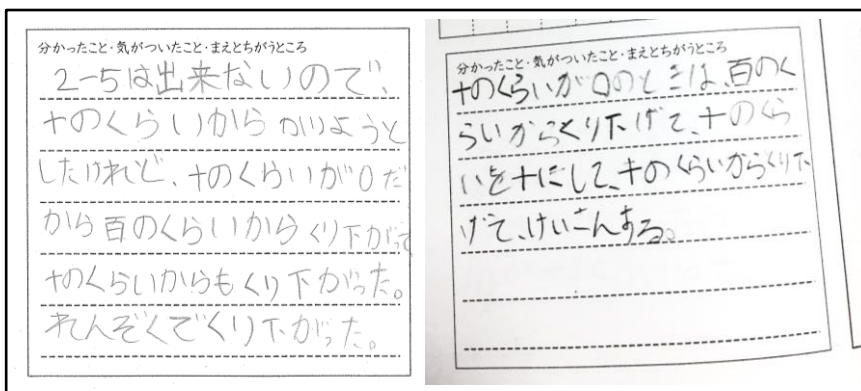 分かったこと・気がついたこと・まえとちがうところ
2-5は出来ないので、
十のくらいからかりようと
したけれど、十のくらいが0だ
から百のくらいからくり下がって
十のくらいからもくり下がった。
れんぞくでくり下がった。
分かったこと・気がついたこと・まえとちがうところ
十のくらいが0のときは、百のく
らいからくり下げて、十のくら
いを十にして、十のくらいからくり下
げて、けいさんする。